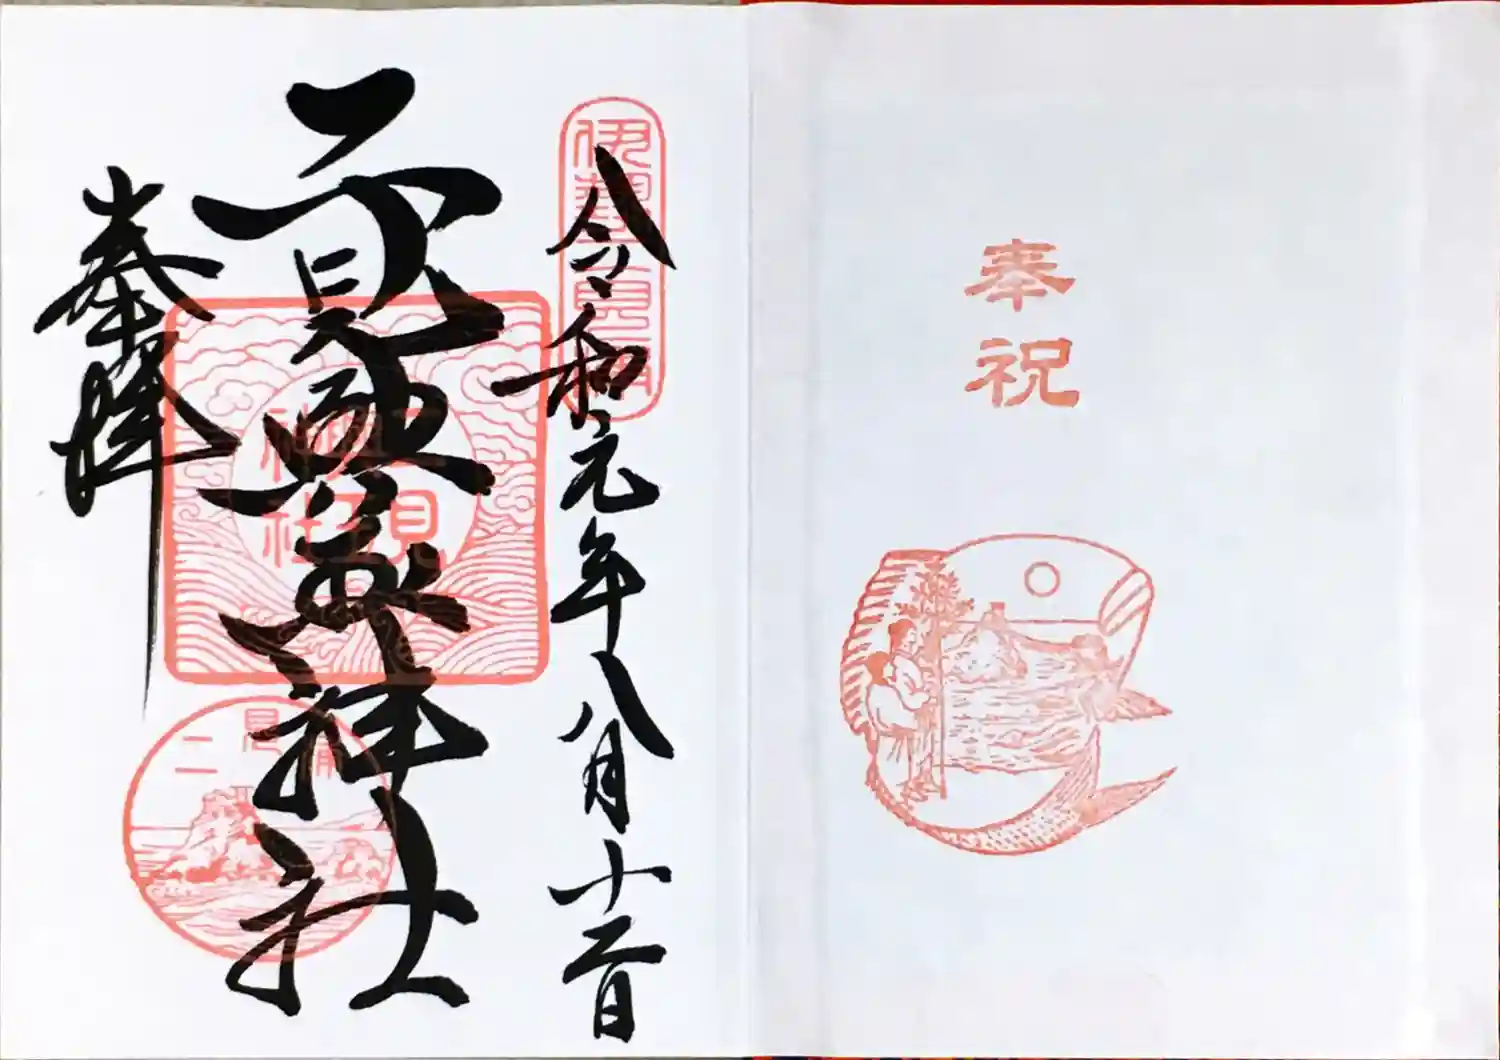 奉祝
伊勢二見浦
令和元年八月十二日
二見興玉神社
二見興玉神社
二見浦
奉拝